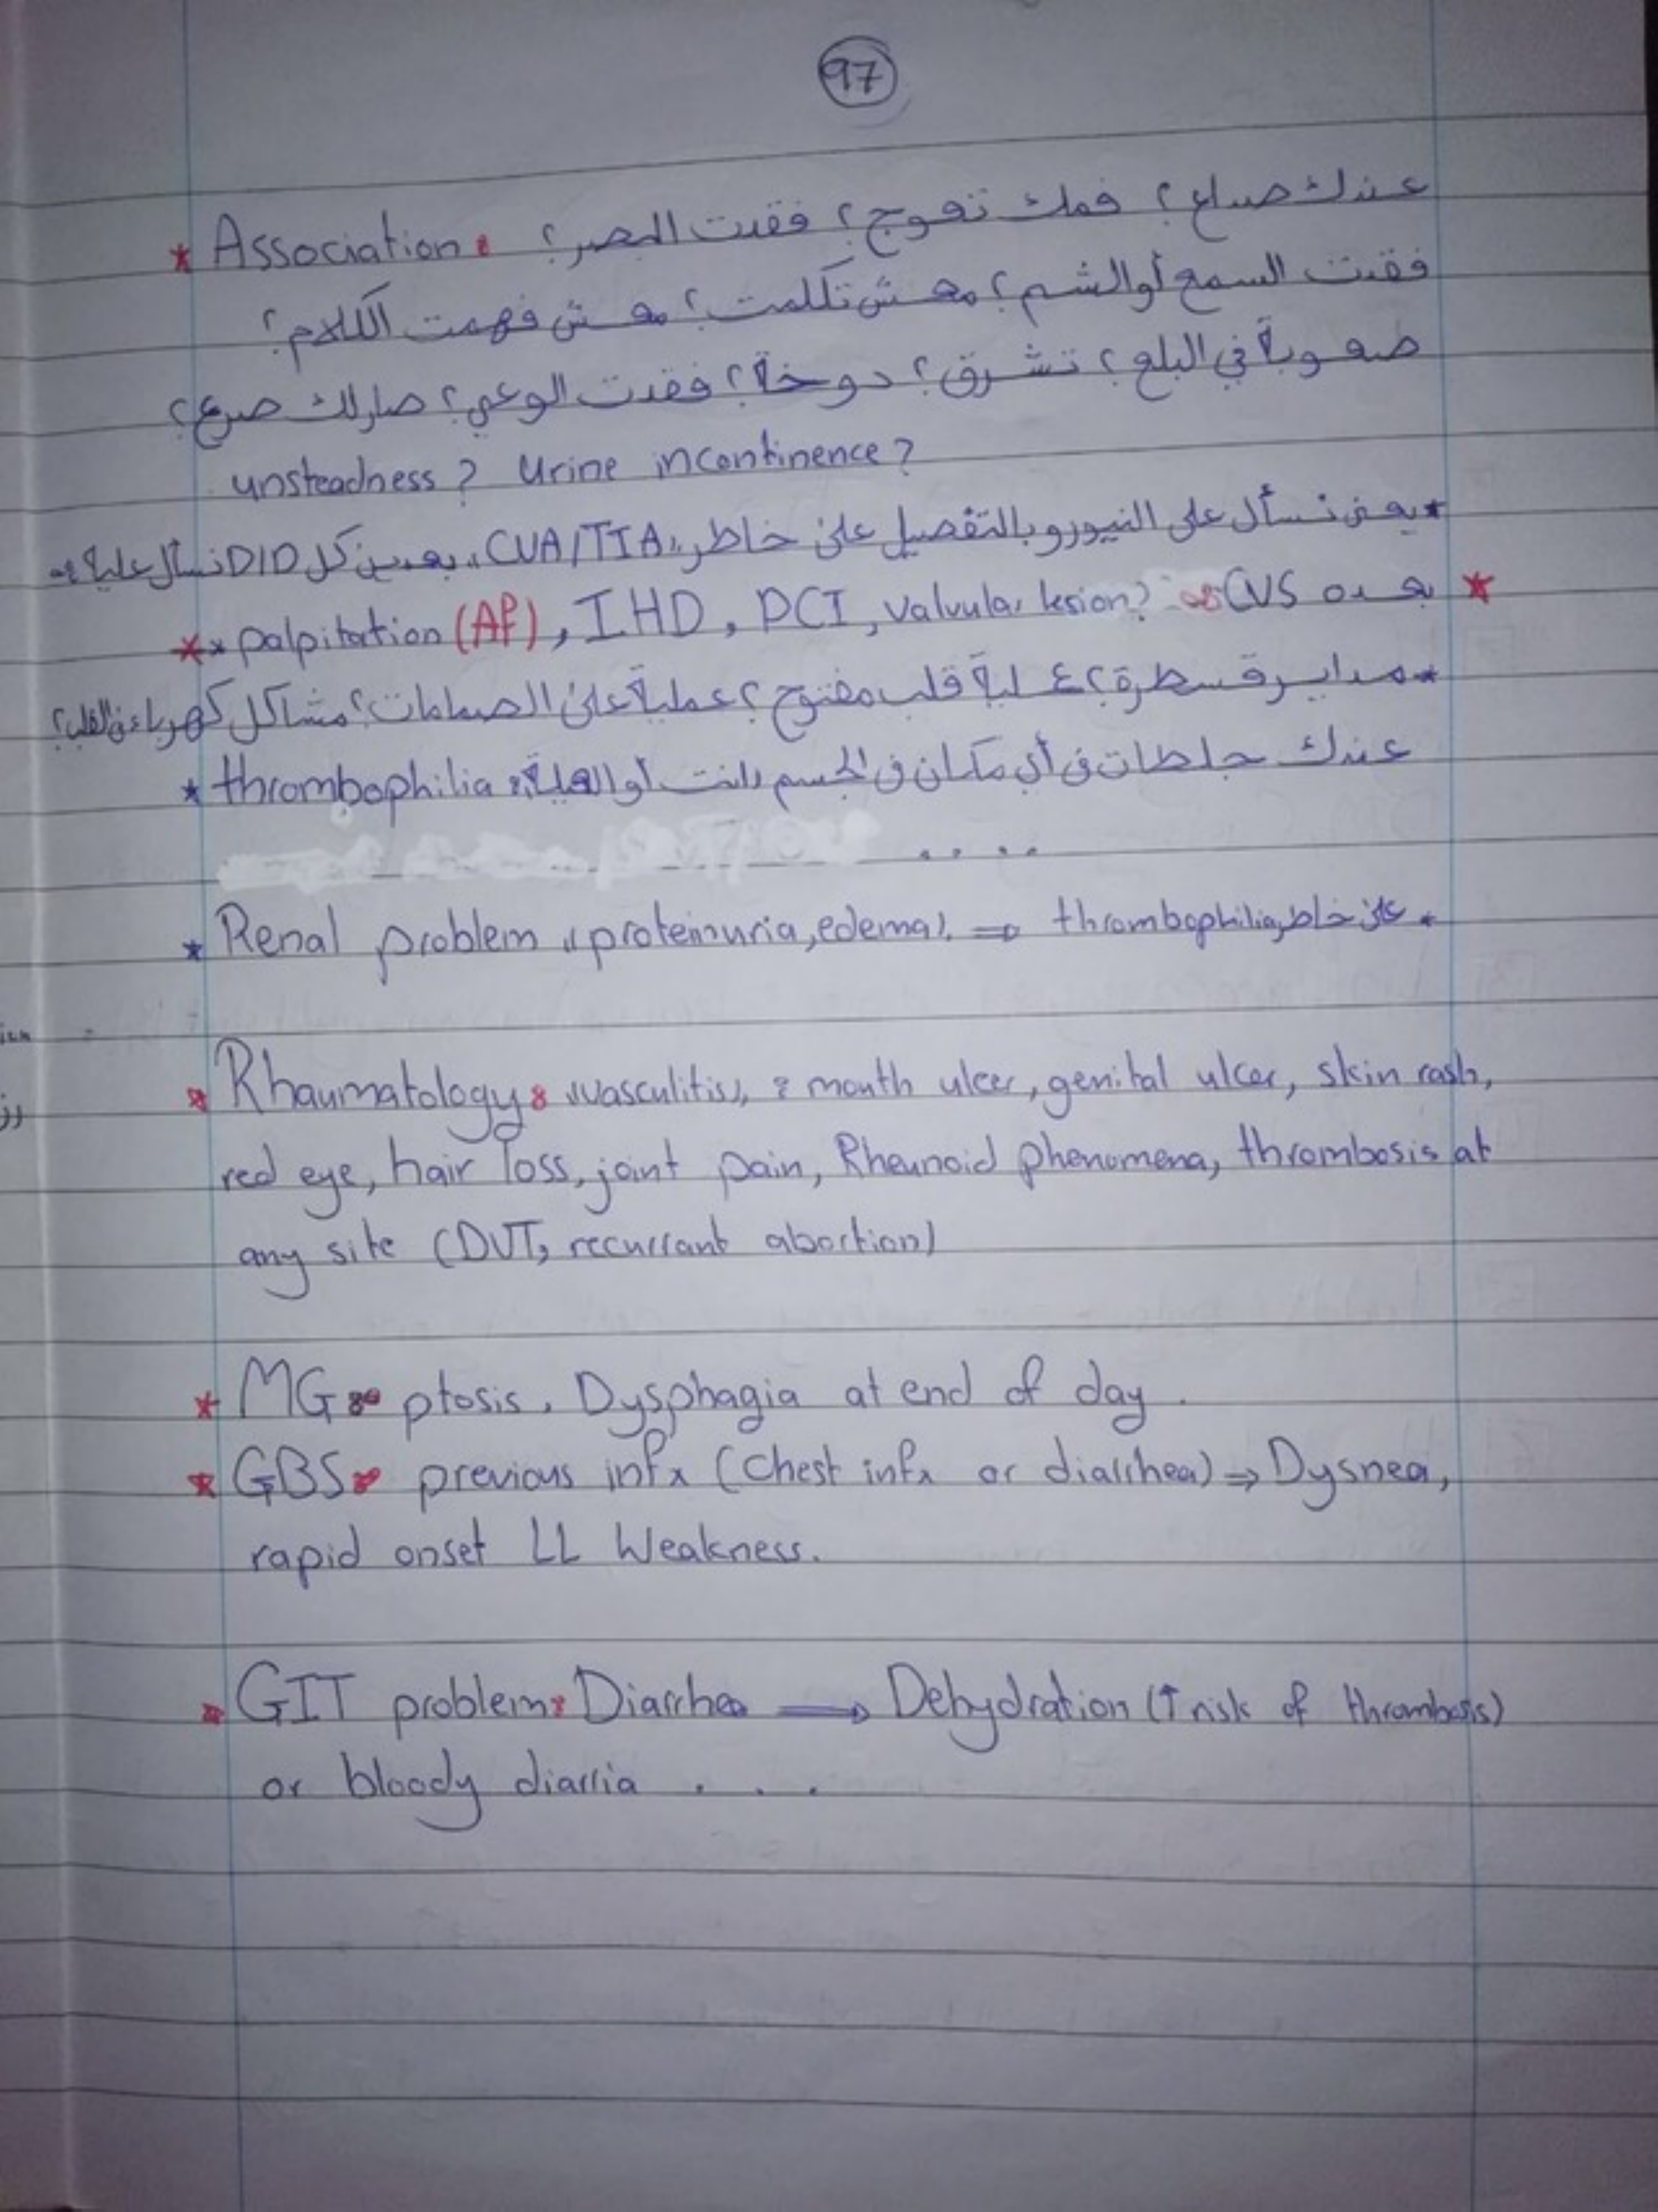 97
* Association: عندك صداع؟ فمك تعوج؟ فقدت البصر؟
فقدت السمع أو الشم؟ معش تكلمت؟ معش فهمت الكلام؟
صعوبة في البلع؟ تشرق؟ دوخة؟ فقدت الوعي؟ صارلك صرع؟
unsteadness? Urine incontinence?
* يعني نسأل على النيورو بالتفصيل علىٰ خاطر "CVA/TIA" بعدين كل D/D نسأل عليه
* بعده CVS:
** palpitation (AF), IHD, PCI, valvular lesion?
* مداير قسطرة؟ عملية قلب مفتوح؟ عملية علىٰ الصمامات؟ مشاكل كهرباء في القلب؟
* thrombophilia: عندك جلطات في أي مكان في الجسم انت أو العيلة؟
....
* Renal problem "proteinuria, edema". ⇒ thrombophilia علىٰ خاطر *
* Rhaumatology: "vasculitis", : mouth ulcer, genital ulcer, skin rash,
red eye, hair loss, joint pain, Rheunoid phenomena, thrombosis at
any site (DVT, recurrant abortion)
* MG: ptosis, Dysphagia at end of day.
* GBS: previous infx (Chest infx or diarrhea) ⇒ Dysnea,
rapid onset LL Weakness.
* GIT problem: Diarrhea ⟹ Dehydration (↑ risk of thrombosis)
or bloody diarria ...